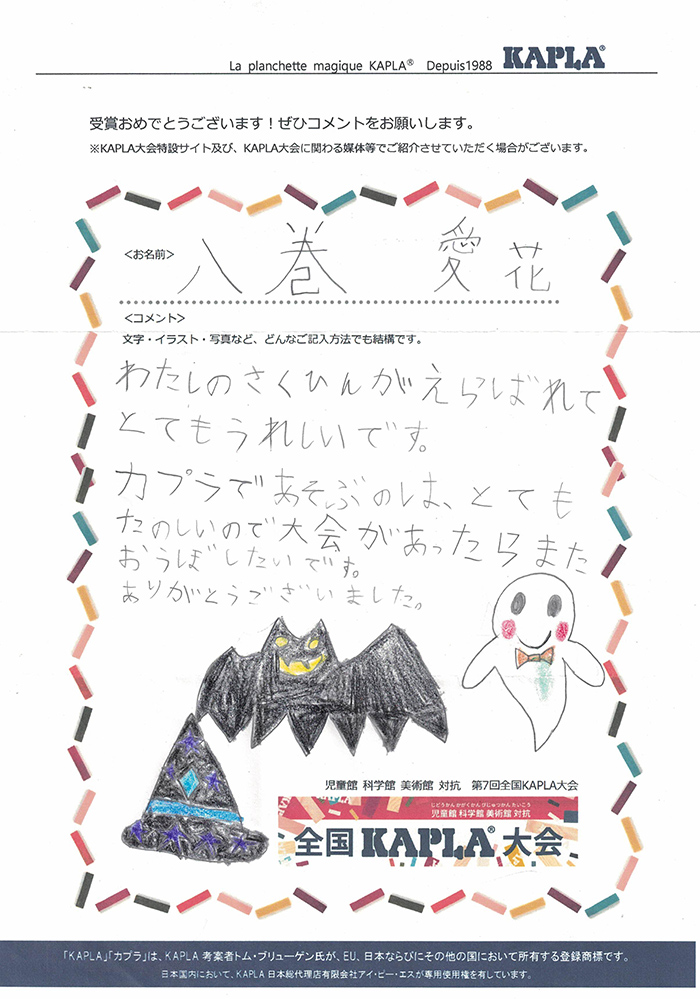 La planchette magique KAPLA® Depuis1988 KAPLA®
受賞おめでとうございます！ぜひコメントをお願いします。
※KAPLA大会特設サイト及び、KAPLA大会に関わる媒体等でご紹介させていただく場合がございます。
<お名前> 八巻 愛花
<コメント>
文字・イラスト・写真など、どんなご記入方法でも結構です。
わたしのさくひんがえらばれて
とてもうれしいです。
カプラであそぶのは、とても
たのしいので大会があったらまた
おうぼしたいです。
ありがとうございました。
児童館 科学館 美術館 対抗 第7回全国KAPLA大会
じどうかんかがくかんびじゅつかんたいこう
児童館 科学館 美術館 対抗
全国 KAPLA® 大会
「KAPLA」「カプラ」は、KAPLA 考案者トム・ブリューゲン氏が、EU、日本ならびにその他の国において所有する登録商標です。
日本国内において、KAPLA 日本総代理店有限会社アイ・ピー・エスが専用使用権を有しています。